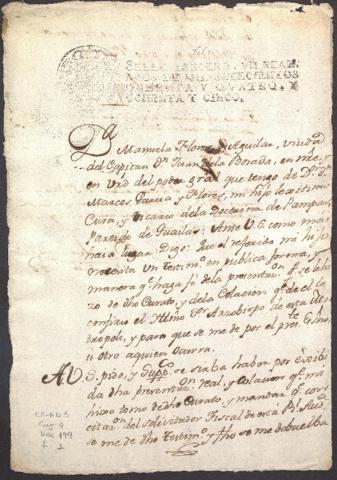 SELLO TERCERO, VN REAL,
AÑOS DE MIL SETECIENTOS
OCHENTA Y QVATRO, Y
OCHENTA Y CINCO.
Da. Manuela Flores de Aguilar, viuda
del Capitan Dn. Juan de la Borada, en nre, y
en vrd del poder gral que tengo de Dr. Dn
Marcos y Flores, mi hijo lexitimo
Cura, y Vicario de la Doctrina de Pampas
Partido de Ante V.S. como mas
haia lugar Digo: Que el referido mi hijo
necesita un Testimo. en publica forma, y
manera q. haga fé de la presentan. q. se le hi
zo de dho Curato, y de la Colacion q. de el le
confirió el Illmo. Sor. Arzobispo de esta
tropoli, y para que se me dé por el preste. Esno,
u otro a quien ocurra.
A V.S. pido, y suppco. se sirba haber por exibi
da dha presentan. real, y Colacion q. mi
hijo tomó dedho Curato, y mandar q. con
citan. del solicitador Fiscal de esta Rl. Auda.
se me dé dho Testimo. y fho se me debuelba